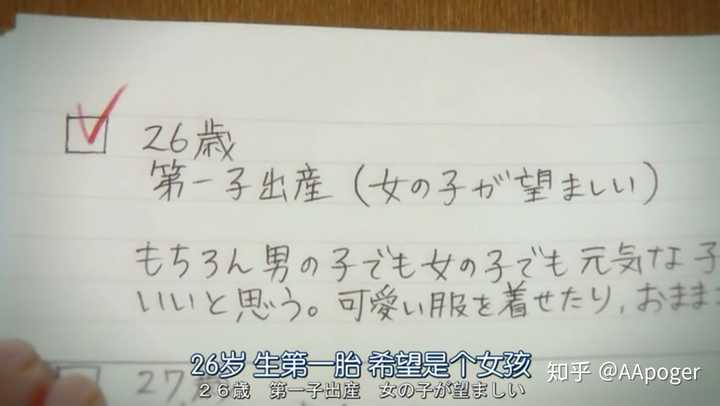 26歳
第一子出産（女の子が望ましい）
もちろん男の子でも女の子でも元気な子
いいと思う。可愛い服を着せたり,おまま
27
26岁 生第一胎 希望是个女孩
26歳 第一子出産 女の子が望ましい
知乎 @AApoger